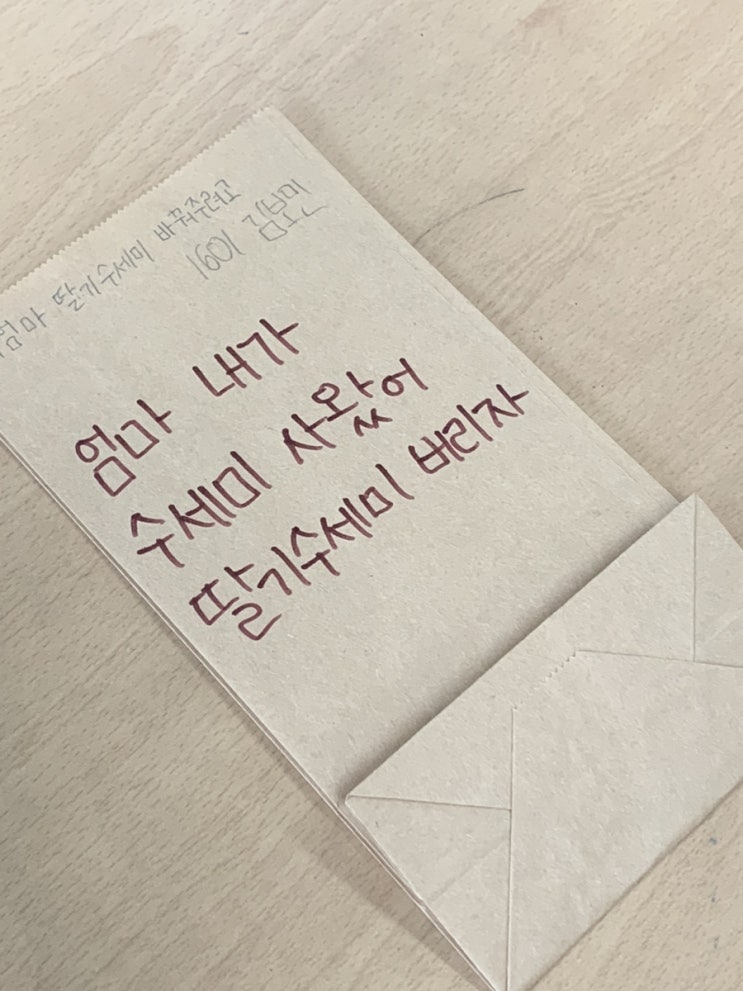 엄마 딸기수세미 바꿔주려고
1601 김보민
엄마 내가
수세미 사왔어
딸기수세미 버리자